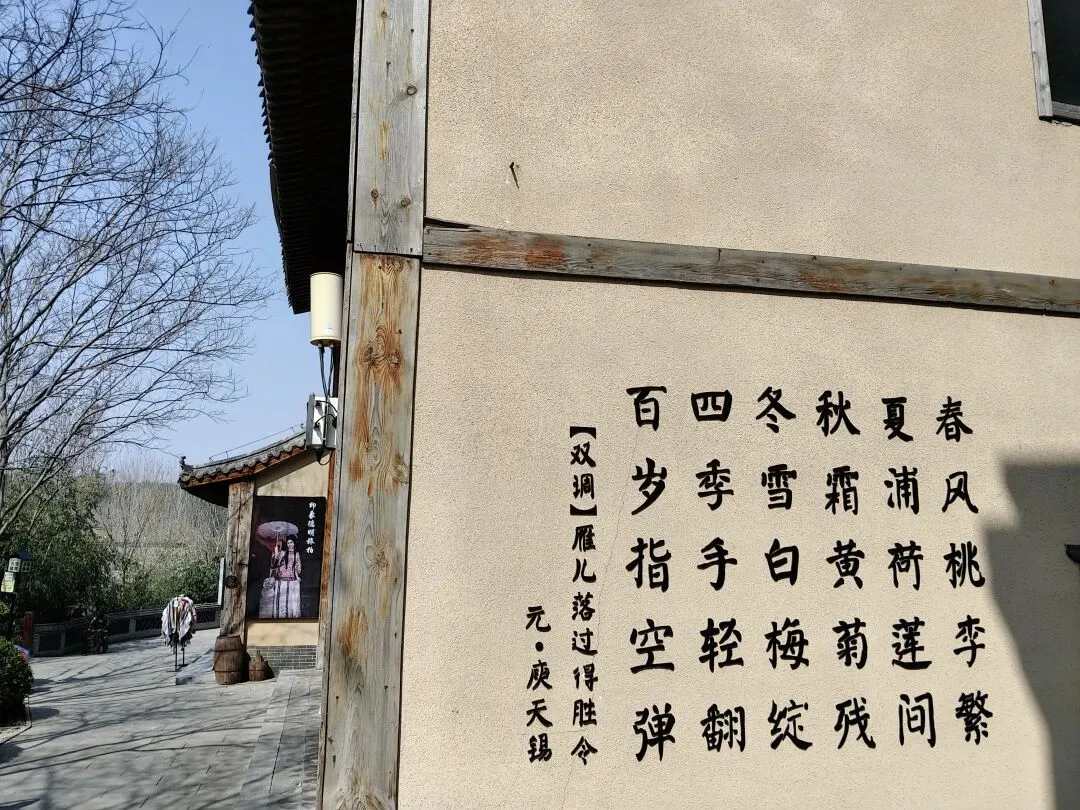 春风桃李繁
夏浦荷莲间
秋霜黄菊残
冬雪白梅绽
四季手轻翻
百岁指空弹
【双调】雁儿落过得胜令
元·庾天锡
印象德明旅拍